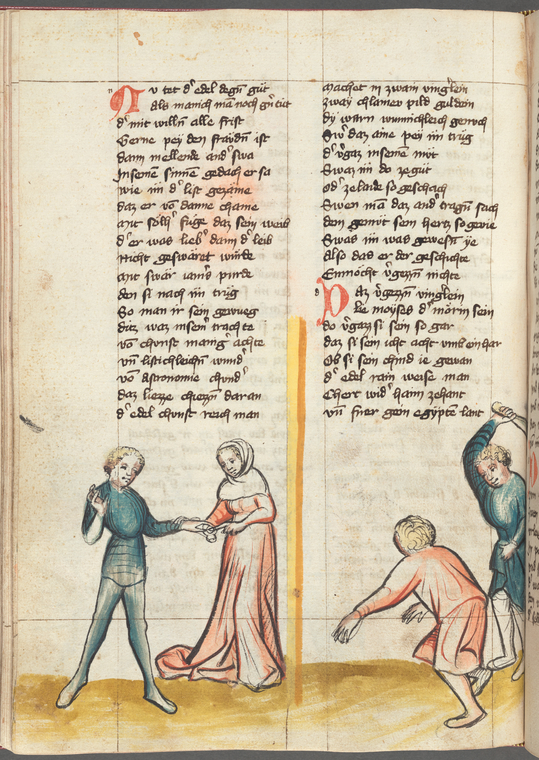 Nu tet d' edel degn̄ gůt
als manich mā noch gn̄ tůt
d' mit willn̄ alle frist
Gerne pey den fraẅdn̄ ist
dann mellende and' swa
Jnsenē sinnē gedach er sa
wie im d' list gezäme
daz er vō danne chäme
ant sölh' fuge daz sein weib
d' er was lieb' dann d' leib
nicht geswäret wurde
ant swär iam's purde
den si nach im trůg
So man ir sein gewůg
ditz waz insein trachte
vō chunst mang' achte
vn̄ listichleichn̄ wund'
vō Astronomie chund'
daz liezze chiezn̄ daran
d' edel chunst reich man
machet in zwain vinglein
zway chlainev pild guldein
dy warn wunnichleich genůch
Sw' daz aine pey im trůg
d' v'gaz insenē můt
Swaz im do ze gůt
od' ze laide so geschach
Swen mā daz and' tragn̄ sach
dem gemůt sein hertz so gewie
Swaz im waz gewesn̄ ye
also das er der geschichte
Enmocht v'gezzn̄ nichte
Daz v'gezzn̄ vinglein
Lie moyses d' mörin sein
do v'gaz si sein so gar
daz si sein icht acht vmb ein har
Ob si sein chind ie gewan
d' edel rain weise man
Chert wid' haim zehant
vn̄ fůer gein egypte lant